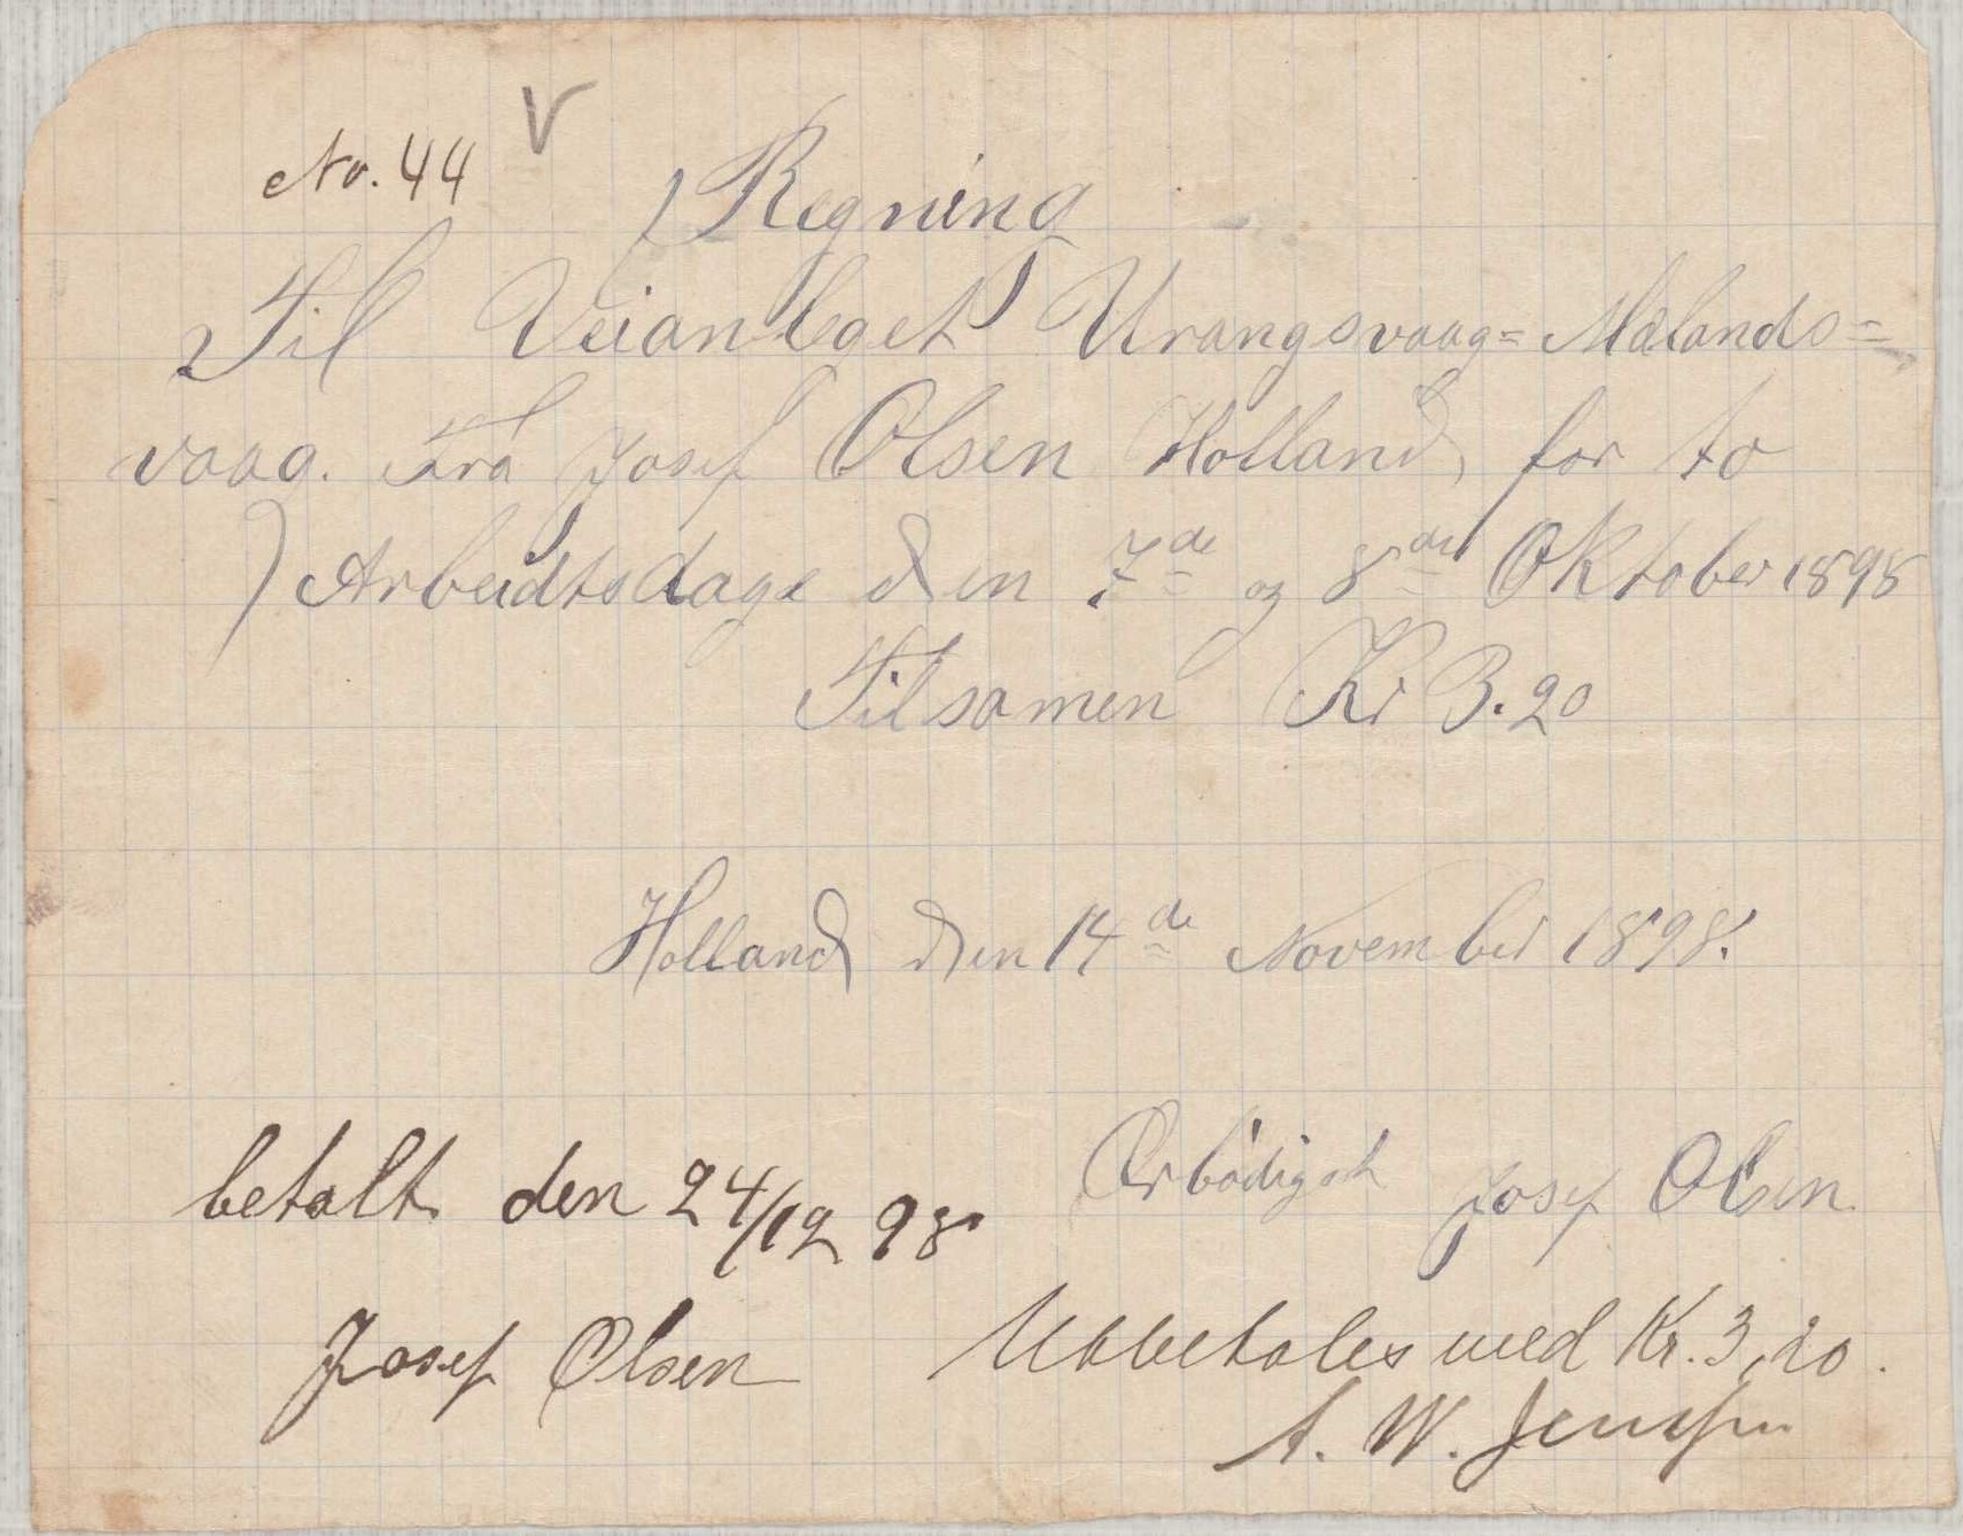 No. 44 V
Regning
Til Veianleget Urangsvaag= Mælands=
vaag. Fra Josef Olsen Holland, for to
Arbeidtsdage den 7de og 8de Oktober 1898
Tilsamen Kr 3.20
Holland den 14de November 1898.
Ærbödigst Josef Olsen
betalt den 24/12 98
Josef Olsen
Udbetales med Kr. 3,20.
A. W. Jensen